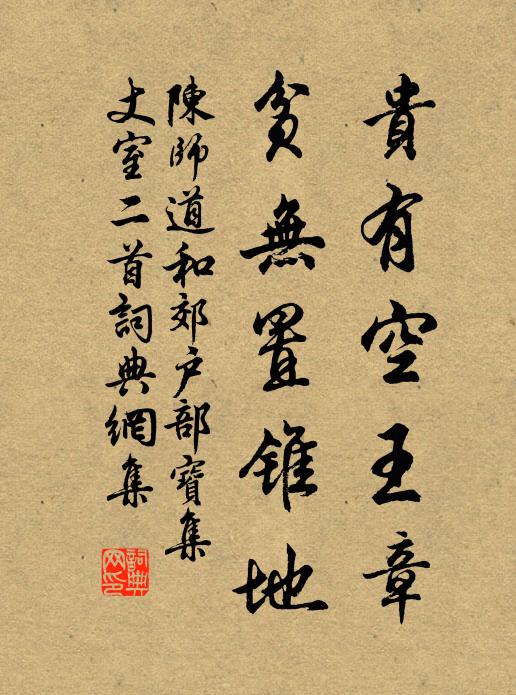 貴有空王章
貧無置錐地
陳師道和郊戶部寶集
丈室二首詞典網集
詞典
网印